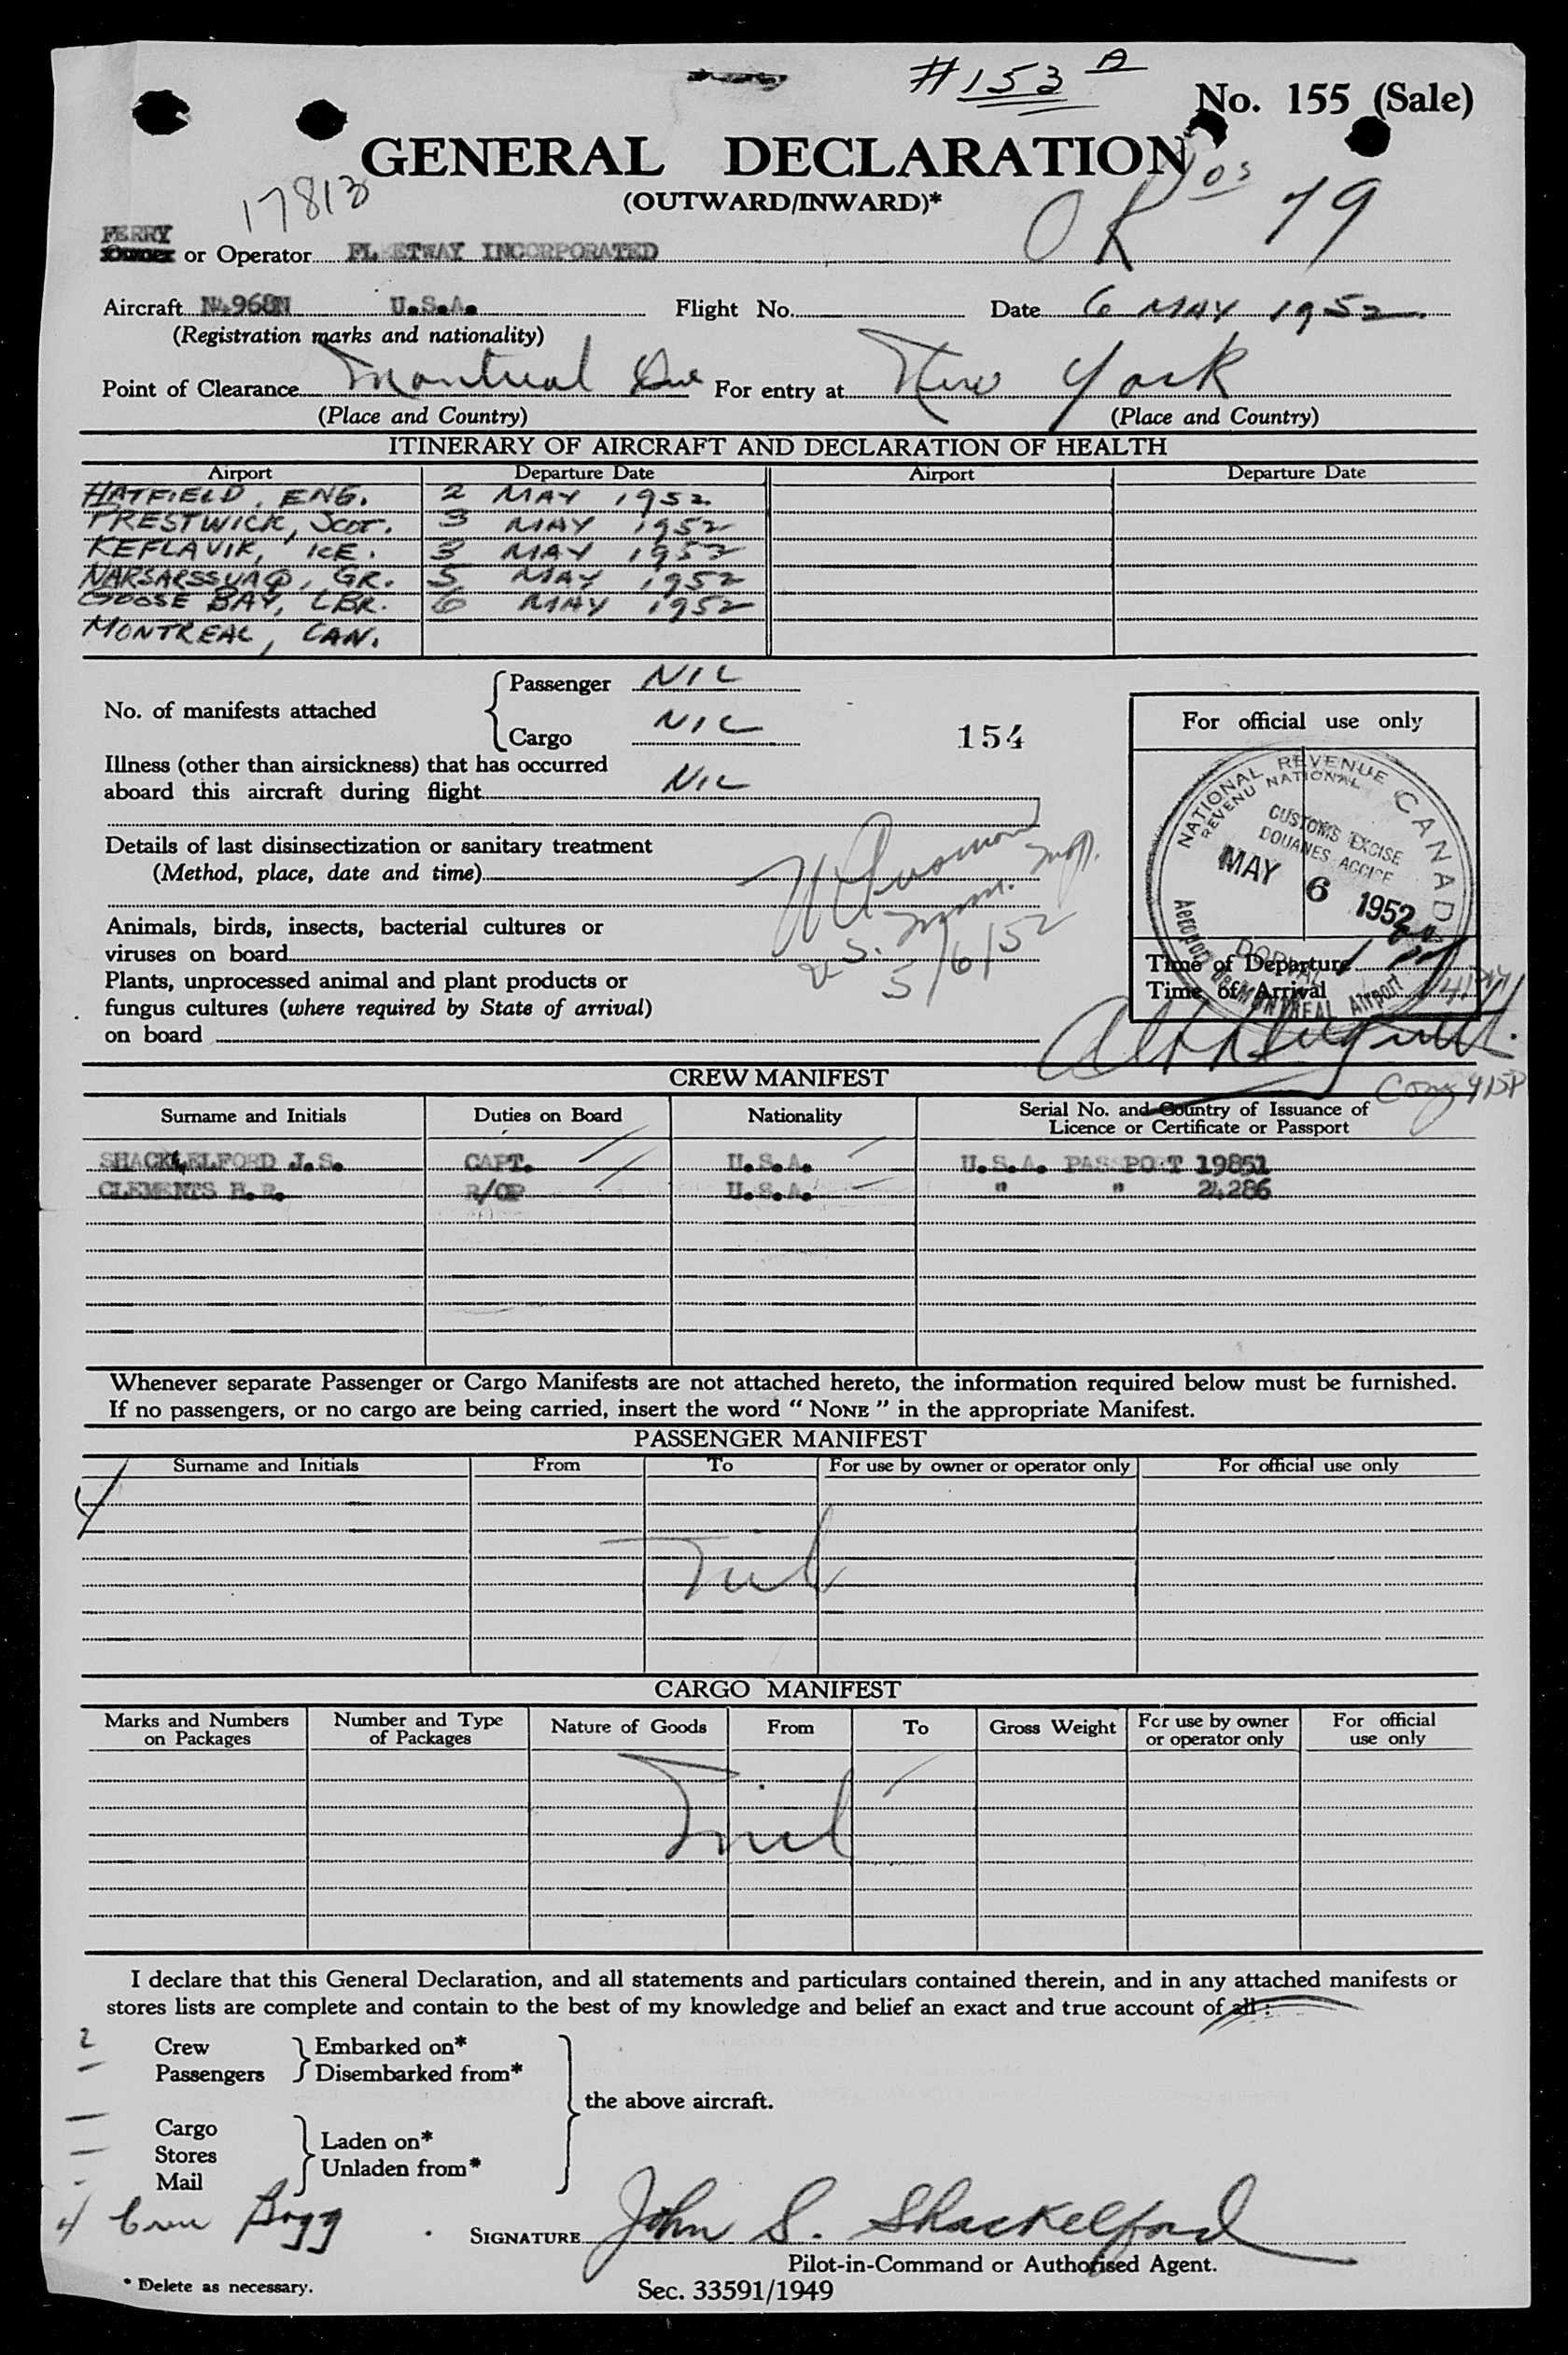 #153 A
No. 155 (Sale)
GENERAL DECLARATION
(OUTWARD/INWARD)*
17813
OK 79
FERRY
Owner or Operator FLEETWAY INCORPORATED
Aircraft N4968N U.S.A. Flight No. Date 6 MAY 1952
(Registration marks and nationality)
Point of Clearance Montreal Que For entry at New York
(Place and Country) (Place and Country)
ITINERARY OF AIRCRAFT AND DECLARATION OF HEALTH
Airport Departure Date Airport Departure Date
HATFIELD, ENG. 2 MAY 1952
PRESTWICK, SCOT. 3 MAY 1952
KEFLAVIK, ICE. 3 MAY 1952
NARSARSSUAQ, GR. 5 MAY 1952
GOOSE BAY, LBR. 6 MAY 1952
MONTREAL, CAN.
No. of manifests attached
Passenger NIL
Cargo NIL
154
For official use only
Illness (other than airsickness) that has occurred
aboard this aircraft during flight NIL
Details of last disinsectization or sanitary treatment
(Method, place, date and time)
U.S. Imm. Insp.
5/6/52
Animals, birds, insects, bacterial cultures or
viruses on board
Plants, unprocessed animal and plant products or
fungus cultures (where required by State of arrival)
on board
NATIONAL REVENUE CANADA
REVENU NATIONAL
CUSTOMS EXCISE
DOUANES ACCISE
MAY 6 1952
DORVAL
Aeroport de MONTREAL Airport
Time of Departure
Time of Arrival
CREW MANIFEST
Surname and Initials Duties on Board Nationality Serial No. and Country of Issuance of
Licence or Certificate or Passport
SHACKLELFORD J.S. CAPT. U.S.A. U.S.A. PASSPORT 19851
CLEMENTS H.R. R/OP U.S.A. " " 24286
Whenever separate Passenger or Cargo Manifests are not attached hereto, the information required below must be furnished.
If no passengers, or no cargo are being carried, insert the word "NONE" in the appropriate Manifest.
PASSENGER MANIFEST
Surname and Initials From To For use by owner or operator only For official use only
Nil
CARGO MANIFEST
Marks and Numbers on Packages Number and Type of Packages Nature of Goods From To Gross Weight For use by owner or operator only For official use only
Nil
I declare that this General Declaration, and all statements and particulars contained therein, and in any attached manifests or
stores lists are complete and contain to the best of my knowledge and belief an exact and true account of all :
2 Crew Embarked on*
Passengers Disembarked from*
the above aircraft.
Cargo
Stores Laden on*
Mail Unladen from*
4 Crew Bagg
SIGNATURE John S. Shackelford
Pilot-in-Command or Authorised Agent.
* Delete as necessary.
Sec. 33591/1949